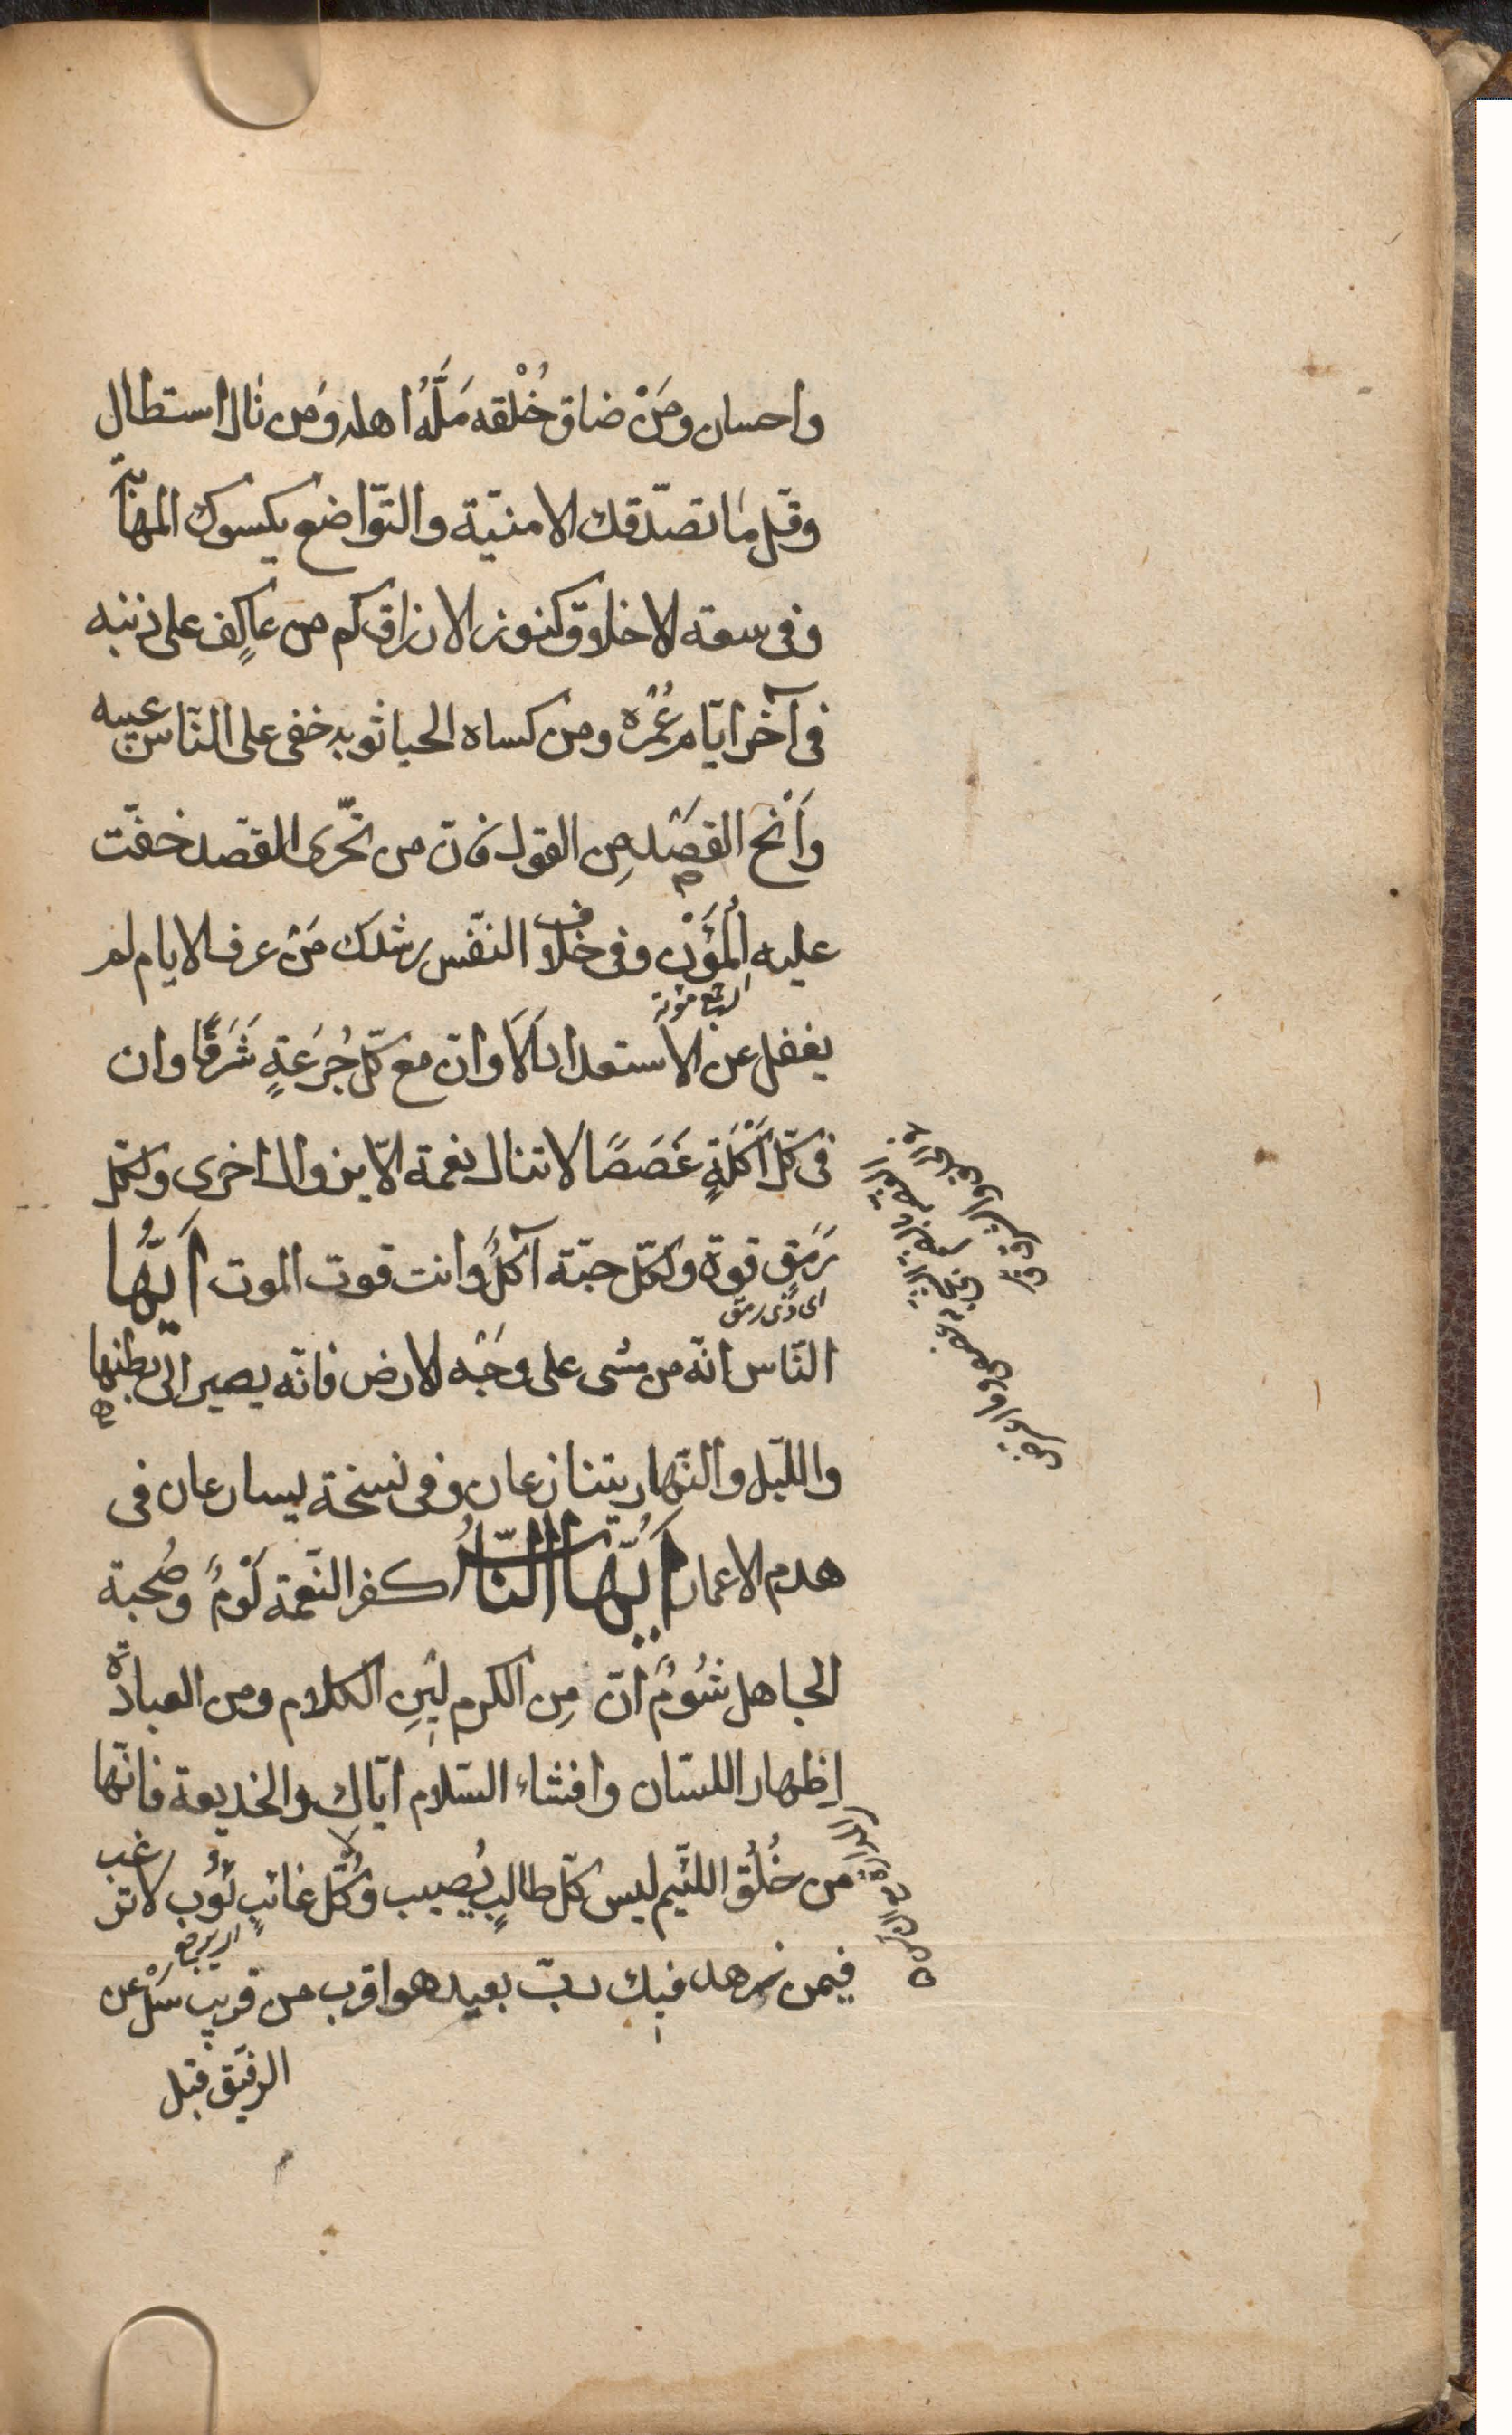 واحسان ومَنْ ضاق خُلْقه مَلَّهُ اهله ومَن نال استطال
وقلّ ما تصدّقك الامنيّة والتّواضع يكسوك المهابة
وفى سعة الاخلاق كنوز الارزاق كم من عاكِفٍ على ذنبه
فى آخر ايّام عُمُره ومن كساه الحيا ثوبه خفى على النّاس عيبه
وَأنْحُ القصْد مِن القول فانّ من تحّرى القصد خفّت
عليه المُؤَنْ وفى خلاف النّفس رشدك مَنْ عرف الايام لم
جمع مؤنة
يغفل عن الاستعداد اَلَا وانّ مع كلّ جُرعَةٍ شَرَقًا وان
فى كلّ اَكْلَةٍ غَصَصًا لا تنال نعمة الّا بزوال اخرى ولكلّ
رَمَقٍ قوة ولكلّ حبّة آكلٌ وانت قوت الموت اَيُّها
اى ذى رمق
النّاس انّه من مشى على وجْه الارض فانّه يصير الى بطنها
والليّل والنّهار يتنازعان وفى نسخة يسارعان فى
هدم الاعمار اَيُّها النّاسُ كفر النّعمة لَوْمٌ وصُحبة
الجاهل شُومٌ انّ مِن الكرم لينِ الكلام ومن العبادة
اِظهار اللسّان وافشاء السّلام ايّاك والخديعة فانّها
من خُلُق اللئيم ليس كلّ طالبٍ يُصيب ولا كُلّ غائبٍ يَؤُب لا ترغب
اى يرجع
فيمن زهد فيك ربّ بعيد هو اقرب من قريب سَلْ عن
الرفيّق قبل